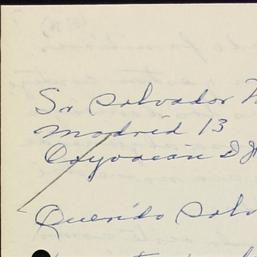 Sr Salvador
Madrid 13
Coyoacán D
Querido Salv